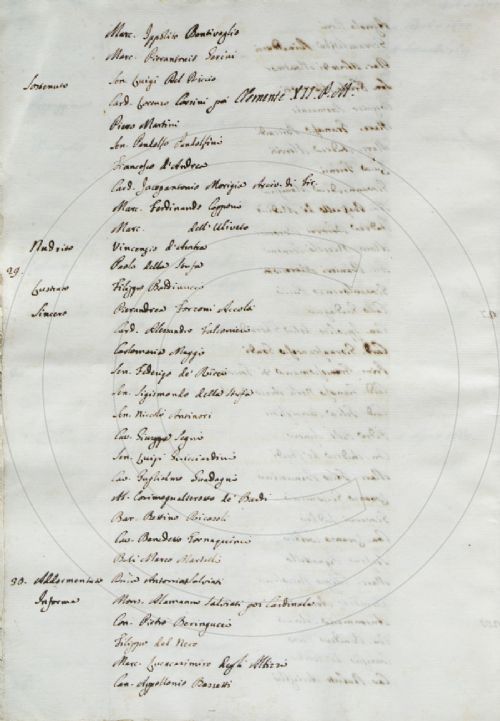 Marc. Ippolito Bentivoglio
Marc. Pierantonio Gerini
Sostenuto Sen. Luigi Del Riccio
Card. Lorenzo Corsini poi Clemente XII P. M.
Piero Martini
Sen. Pandolfo Pandolfini
Francesco d'Andrea
Card. Jacopantonio Morigia Arciv. di Fir.
Marc. Ferdinando Capponi
Marc. dell' Uliveto
Nudrito Vincenzio d'Ambra
29. Paolo della Stufa
Lustrato Filippo Baldinucci
Sincero Pierandrea Forzoni Accolti
Card. Alessandro Falconieri
Carlomaria Maggi
Sen. Federigo de' Ricci
Sen. Sigismondo della Stufa
Sen. Niccolò Antinori
Cav. Giuseppe Segni
Sen. Luigi Guicciardini
Cav. Guglielmo Guadagni
de' Bardi
Bar. Bettino Ricasoli
Cav. Benedetto Tornaquinci
Bali Marco Martelli
30. Antonino Salviati
Informe Mons. Alamanno Salviati poi Cardinale
Con. Pietro Beringucci
Filippo del Nero
Marc. Lucacasimiro degli Albizi
Can. Appollonio Bassetti